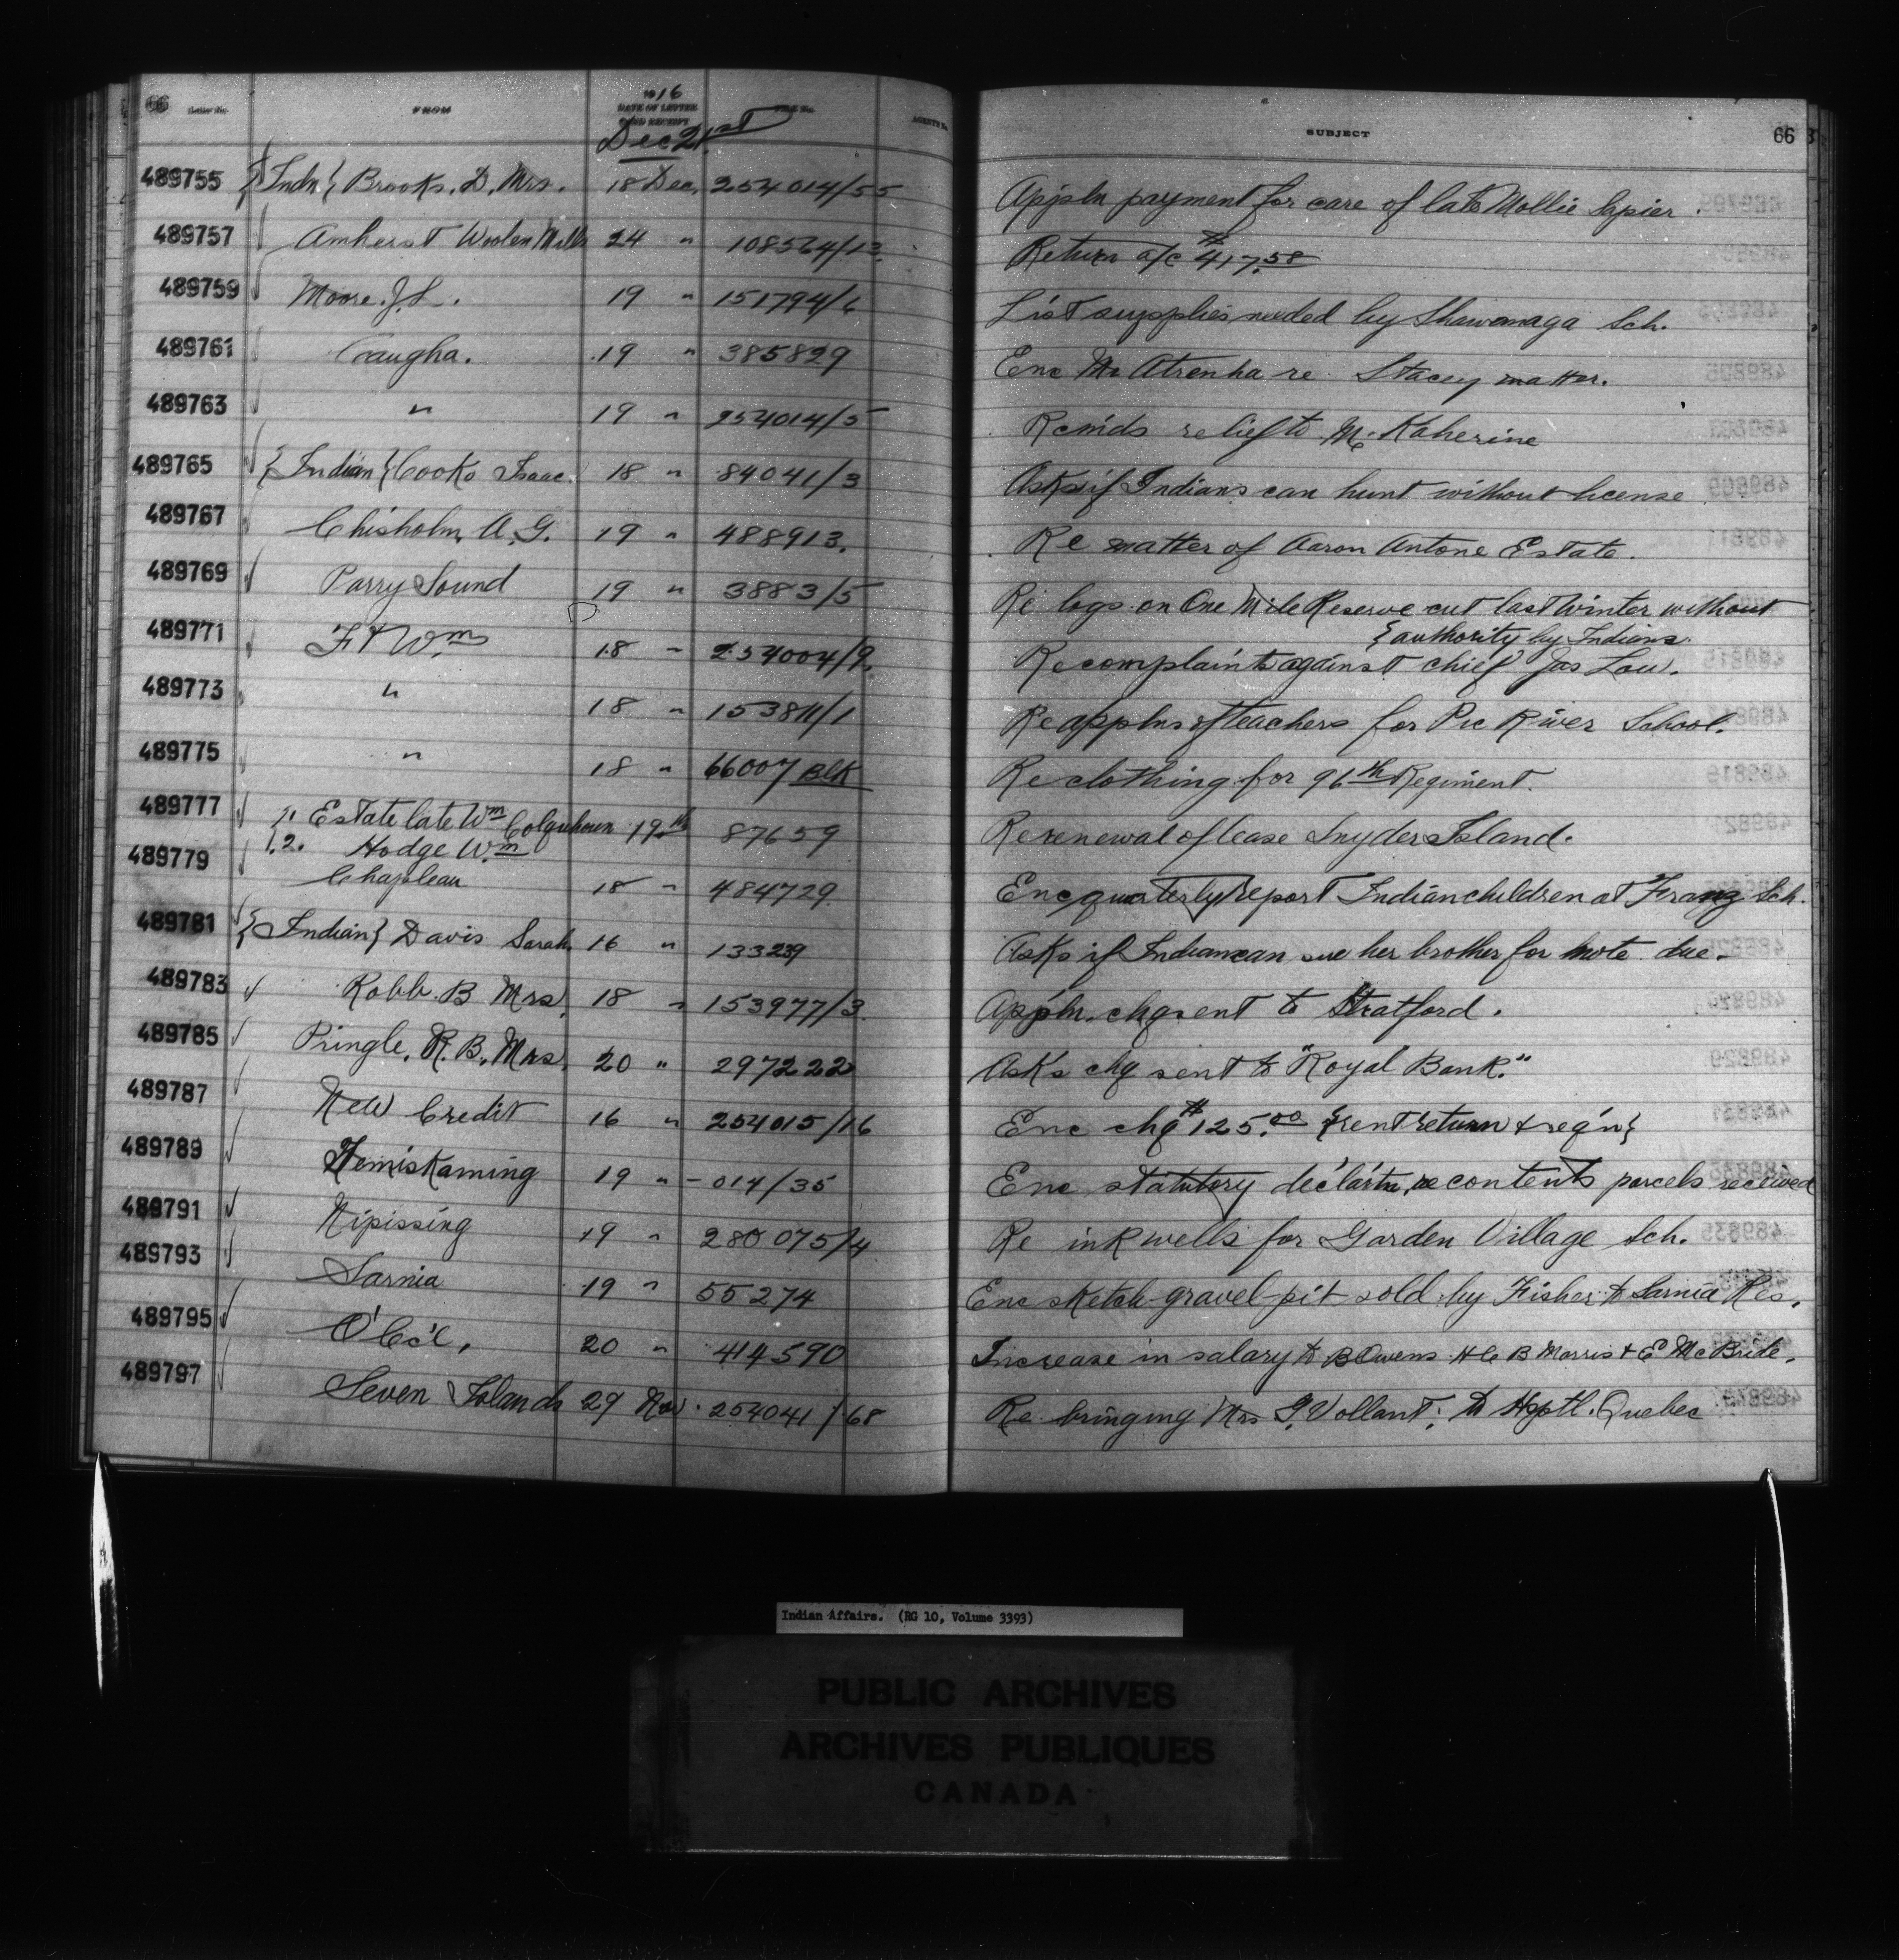 66 Letter No. FROM 1916 DATE OF LETTER AND RECEIPT FILE No. AGENT'S No. SUBJECT 66
Dec 21st
489755 {Indn} Brooks. D. Mrs. 18 Dec. 254014/55 Appln payment for care of late Mollie Lapier.
489757 Amherst Woolen Mills 24 " 108564/13. Return a/c $417.58
489759 Moore. J. L. 19 " 151794/6 List supplies needed by Shawanaga Sch.
489761 Caugha. 19 " 385829 Enc Mr Atrenha re Stacey matter.
489763 " 19 " 254014/5 Rem'ds relief to Mc Katherine
489765 {Indian} Cooko Isaac 18 " 84041/3 Asks if Indians can hunt without license
489767 Chisholm, A. G. 19 " 488913. Re matter of Aaron Antone Estate.
489769 Parry Sound 19 " 3883/5 Re logs on One Mile Reserve cut last winter without
{authority by Indians.
489771 Ft Wm 18 " 254004/9. Re complaints against chief Jas Lou.
489773 " 18 " 153811/1 Re applns of teachers for Pic River School.
489775 " 18 " 66007 Blk Re clothing for 96th Regiment.
489777 1. Estate late Wm Colquhoun 19th 87659 Re renewal of lease Snyder Island.
1.2. Hodge Wm
489779 Chapleau 18 " 484729. Enc quarterly report Indian children at Franz Sch.
489781 {Indian} Davis Sarah 16 " 133239 Asks if Indian can sue her brother for note due.
489783 Robb. B Mrs. 18 " 153977/3. Appln. chq sent to Stratford.
489785 Pringle, R. B. Mrs. 20 " 297222 Asks chq sent to "Royal Bank."
489787 New Credit 16 " 254015/16 Enc chq $125.00 {rent return & reg'n}
489789 Temiskaming 19 " -014/35 Enc statutory declar'tn, re contents parcels received
489791 Nipissing 19 " 280075/4 Re ink wells for Garden Village Sch.
489793 Sarnia 19 " 55274 Enc sketch gravel-pit sold by Fisher to Sarnia Res.
489795 O'Cc'l, 20 " 414590 Increase in salary to B Owens H C B Morris & E McBride.
489797 Seven Islands 29 Nov. 254041/68 Re bringing Mrs J. Vollant, to Hsptl. Quebec
Indian Affairs. (RG 10, Volume 3393)
PUBLIC ARCHIVES
ARCHIVES PUBLIQUES
CANADA